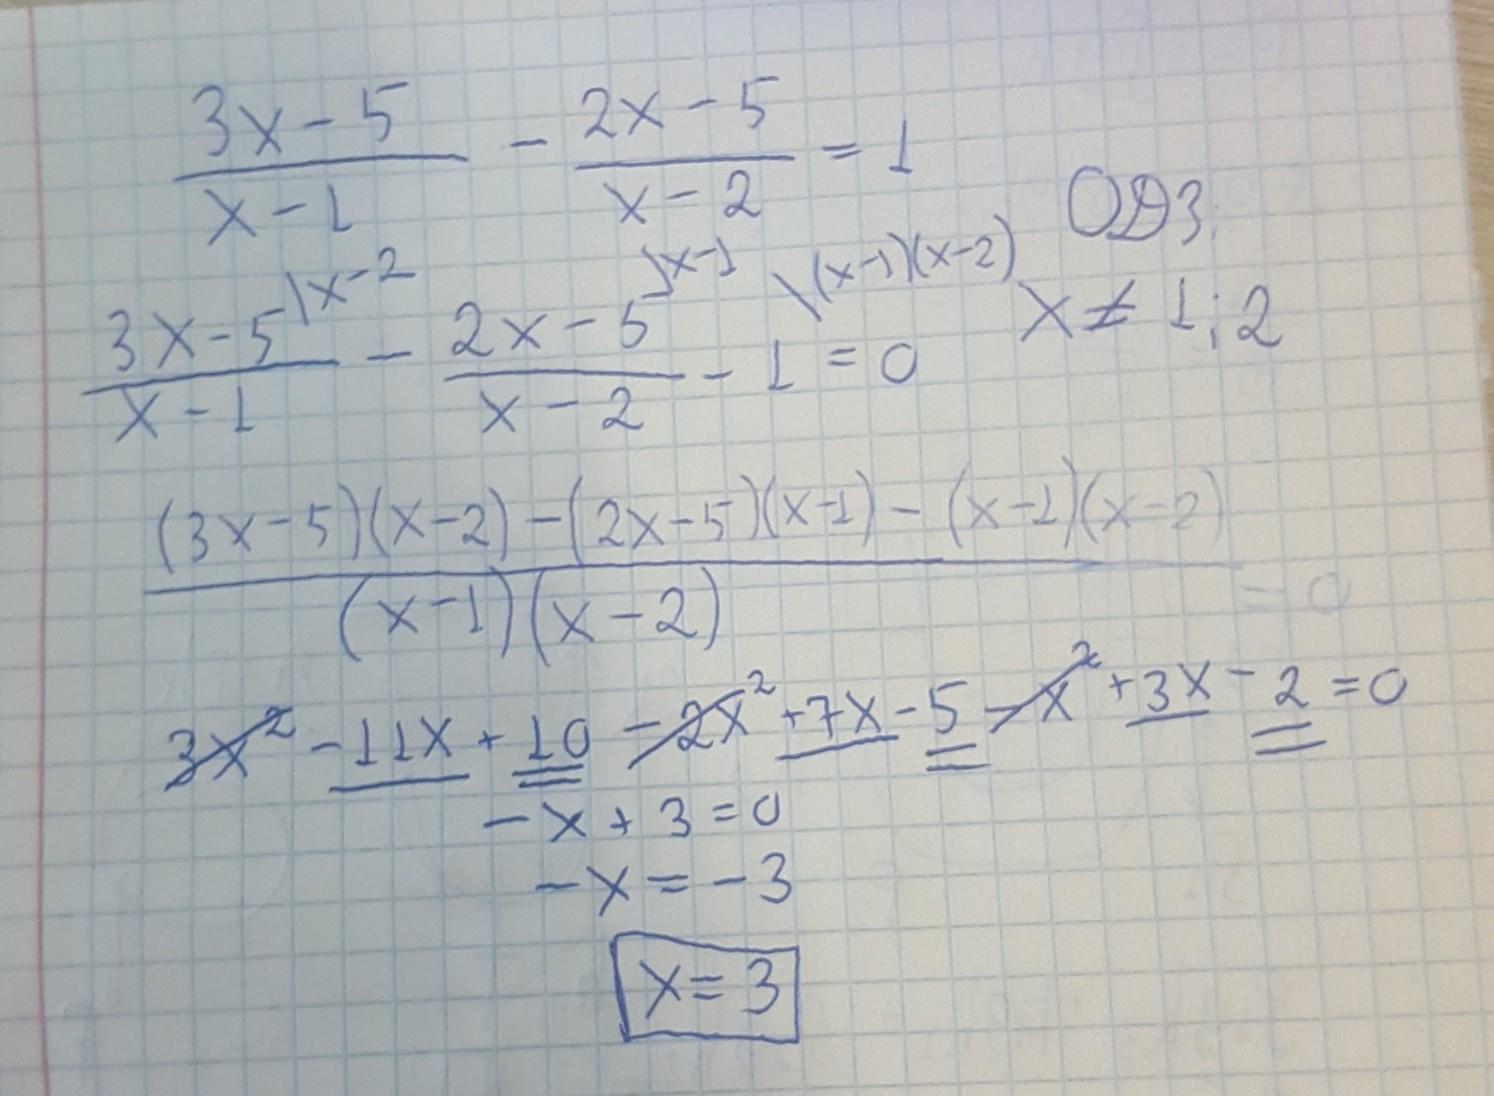 (3x-5)/(x-1) - (2x-5)/(x-2) = 1
ОДЗ:
x ≠ 1; 2
(3x-5)/(x-1) \x-2 - (2x-5)/(x-2) \x-1 - 1 \(x-1)(x-2) = 0
((3x-5)(x-2) - (2x-5)(x-1) - (x-1)(x-2))/((x-1)(x-2)) = 0
3x² - 11x + 10 - 2x² + 7x - 5 - x² + 3x - 2 = 0
-x + 3 = 0
-x = -3
x = 3